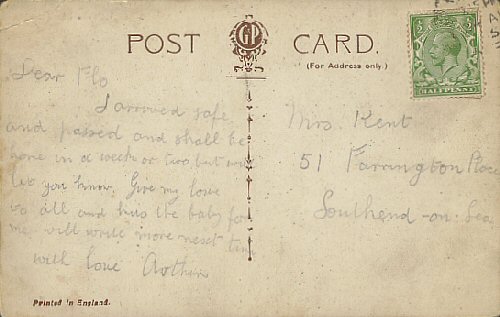 POST CARD.
(For Address only.)
HALFPENNY
Dear Flo
I arrived safe
and passed and shall be
gone in a week or two but will
let you know. Give my love
to all and kiss the baby for
me will write more next time
with love Arthur
Mrs. Kent
51 Farringdon Place
Southend-on-Sea
Printed in England.